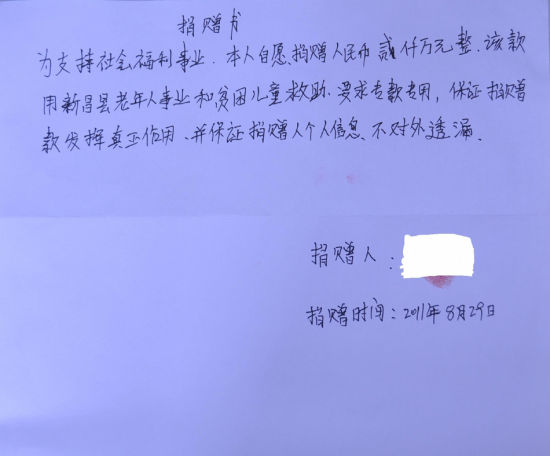 捐赠书
为支持社会福利事业.本人自愿捐赠人民币贰仟万元整.该款
用新昌县老年人事业和贫困儿童救助.要求专款专用,保证捐赠
款发挥真正作用、并保证捐赠人个人信息、不对外透漏.
捐赠人:
捐赠时间:2011年8月29日